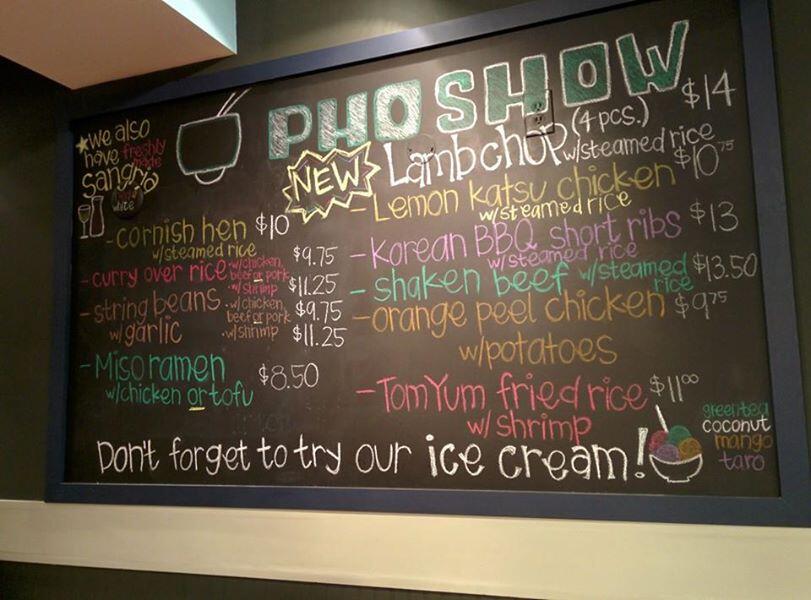 PHO SHOW
★we also
have freshly
made
sangria
white
-cornish hen $10
w/steamed rice
-curry over rice w/chicken, beef or pork $9.75
w/shrimp $11.25
-string beans w/garlic w/chicken, beef or pork $9.75
w/shrimp $11.25
-Miso ramen $8.50
w/chicken or tofu
NEW
Lamb chop (4 pcs.) $14
w/steamed rice
-Lemon katsu chicken $10.75
w/steamed rice
-Korean BBQ short ribs $13
w/steamed rice
-shaken beef w/steamed rice $13.50
-orange peel chicken $9.75
w/potatoes
-Tom Yum fried rice $11.00
w/shrimp
Don't forget to try our ice cream!
green tea
coconut
mango
taro